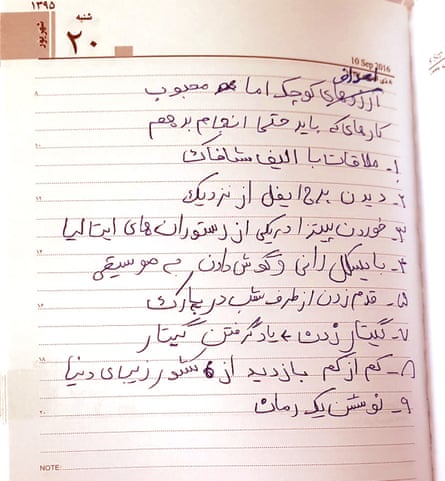 ۱۳۹۵
شنبه
شهریور
۲۰
10 Sep 2016
اهداف
آرزوهای کوچک اما محبوب
۸
کارهای که باید حتما انجام بدهم
۱۰
۱- ملاقات با الیف شافاک
۲- دیدن برج ایفل از نزدیک
۱۲
۳- خوردن پیتزا در یکی از رستوران های ایتالیا
۴- بایسکل رانی و گوش دادن به موسیقی
۱۴
۵- قدم زدن از طرف شب در پارک
۱۶
۷- گیتار زدن ← یاد گرفتن گیتار
۱۸
۸- کم از کم بازدید از 6 کشور زیبای دنیا
۹- نوشتن یک رمان
۲۰
NOTE: